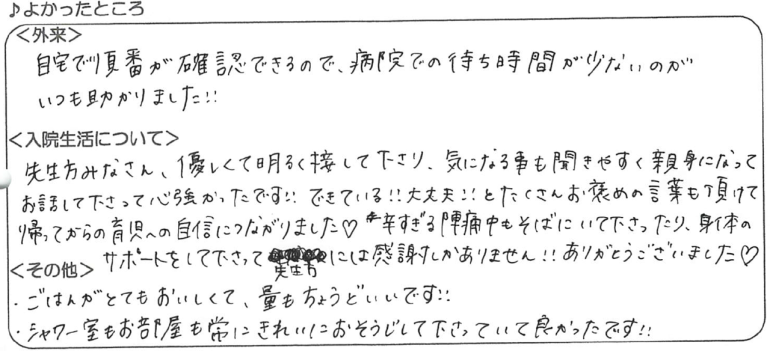 ♪よかったところ
<外来>
自宅で順番が確認できるので、病院での待ち時間が少ないのが
いつも助かりました!!
<入院生活について>
先生方みなさん、優しくて明るく接して下さり、気になる事も聞きやすく親身になって
お話して下さって心強かったです!! できている!! 大丈夫!! とたくさんお褒めの言葉も頂けて
帰ってからの育児への自信につながりました♡ 辛すぎる陣痛中もそばにいて下さったり、身体の
サポートをして下さって先生方には感謝しかありません!! ありがとうございました♡
<その他>
・ごはんがとてもおいしくて、量もちょうどいいです!!
・シャワー室もお部屋も常にきれいにおそうじして下さっていて良かったです!!